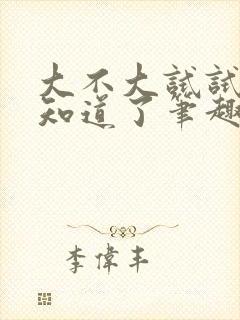 大不大試試
知道了筆趣
李偉丰